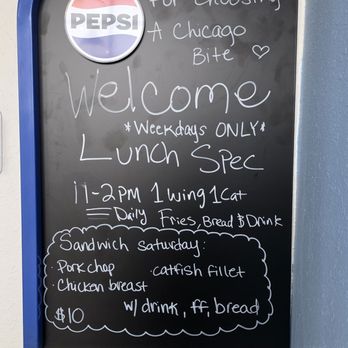 For Choosing
PEPSI
A Chicago
Bite
Welcome
*Weekdays ONLY*
Lunch Spec
11-2PM 1 wing 1 Cat
Daily Fries, Bread & Drink
Sandwich Saturday:
· Pork chop · catfish fillet
· Chicken breast
$10 w/ drink, ff, bread